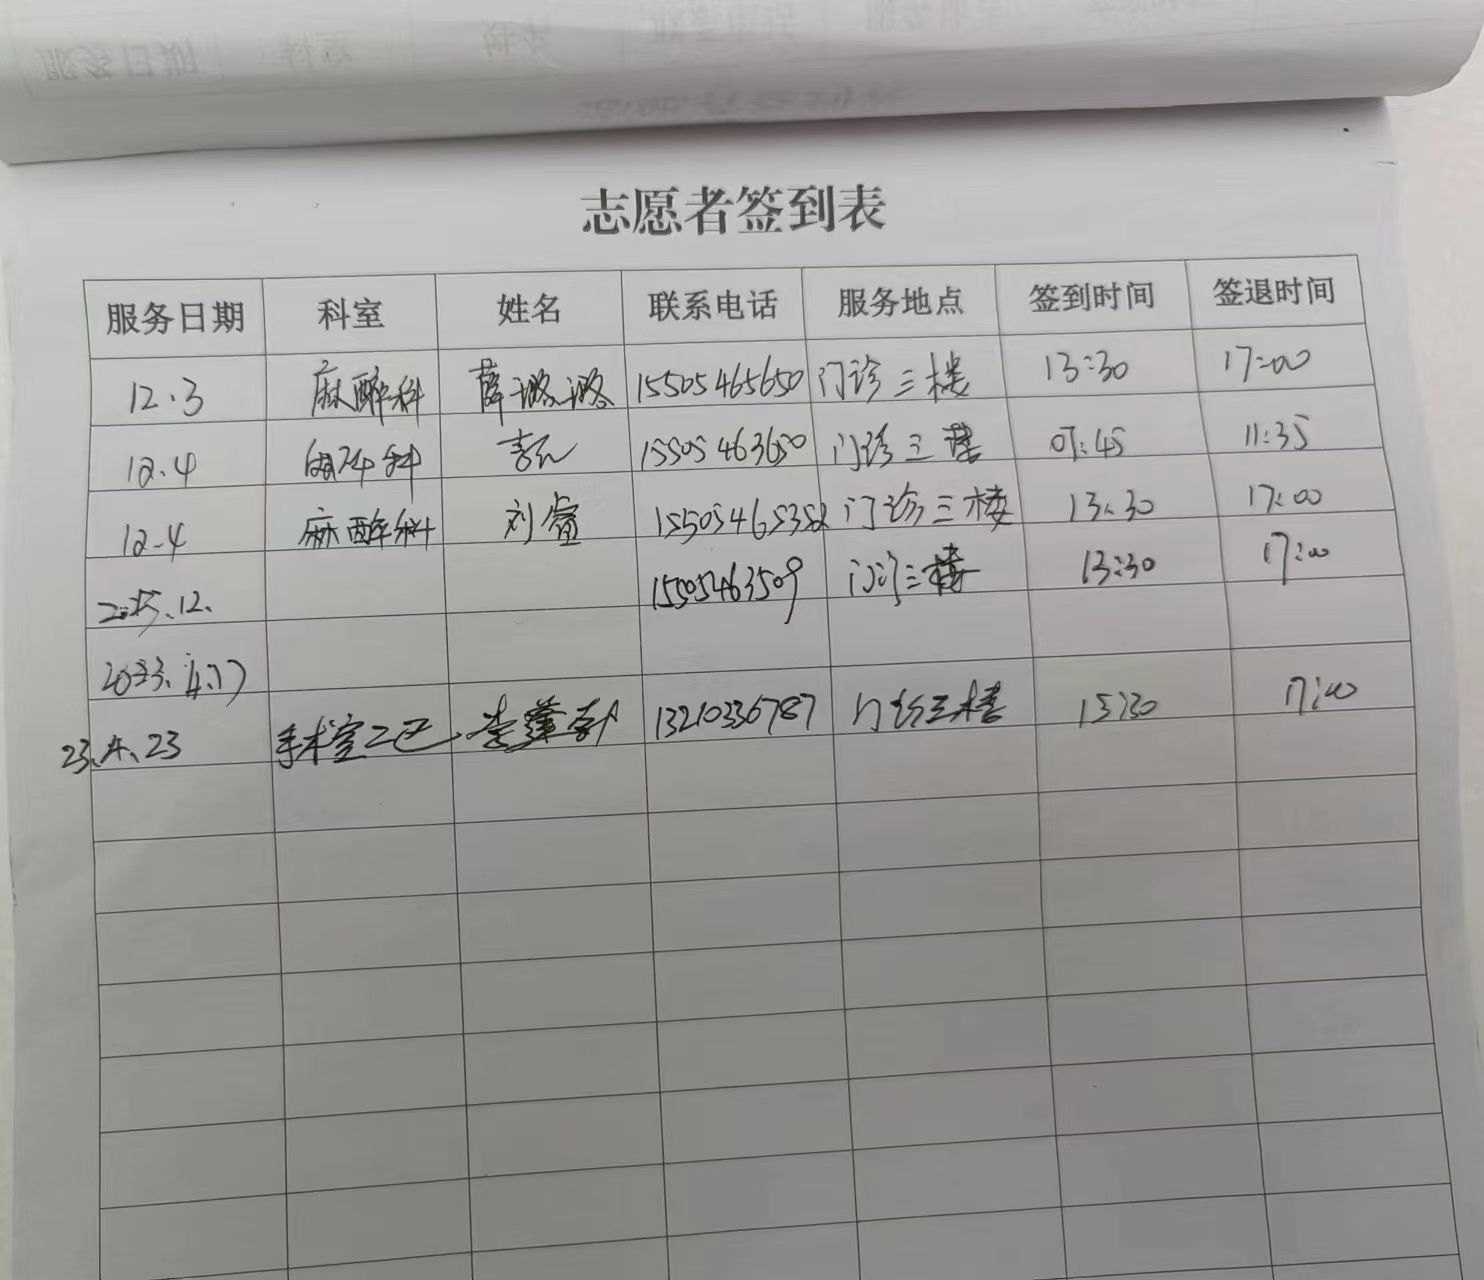 志愿者签到表
服务日期 科室 姓名 联系电话 服务地点 签到时间 签退时间
12.3 麻醉科 薛璐璐 15505465650 门诊三楼 13:30 17:00
12.4 麻醉科 15505463650 门诊三楼 07:45 11:35
12.4 麻醉科 刘睿 门诊三楼 13:30 17:00
12. 15505463509 门诊三楼 13:30 17:00
23.4.23 手术室二区 李 13210336787 门诊三楼 17:00